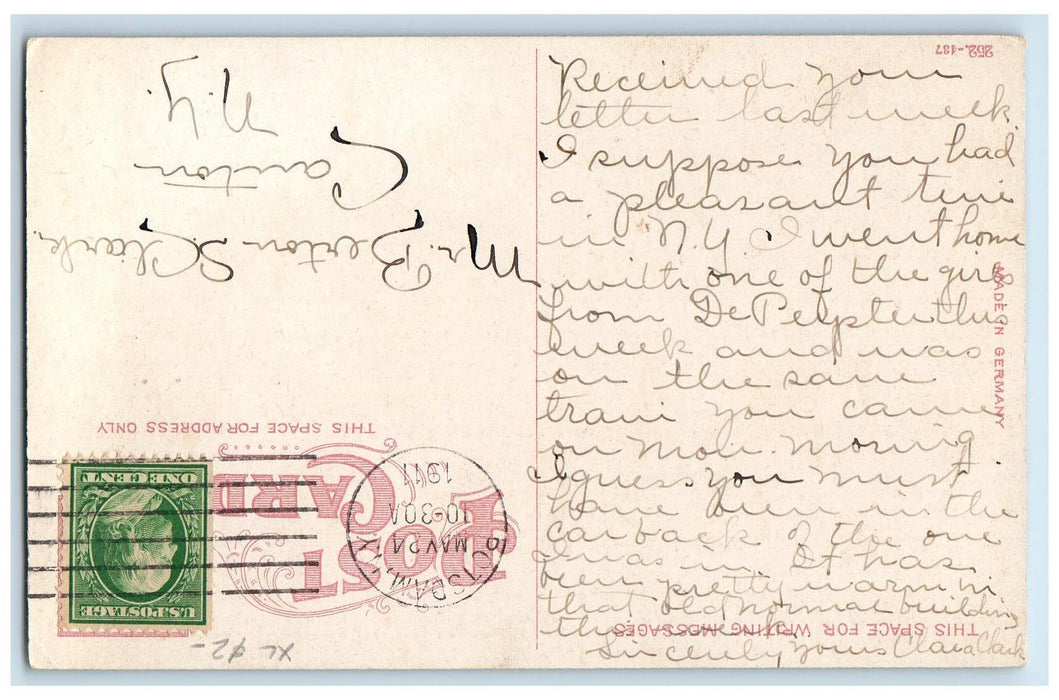 Received your
letter last week
I suppose you had
a pleasant time
in N.Y I went home
with one of the girls
from DePeyster this
week and was
on the same
train you came
on Mon. morning
I guess you must
have been in the
car back of the one
I was in. It has
been pretty warm in
that old normal building
this week
Sincerely yours Clara Clark
THIS SPACE FOR WRITING MESSAGES
MADE IN GERMANY
252.-487
Mr. Berton S. Clark.
Canton
N.Y.
THIS SPACE FOR ADDRESS ONLY
POST
CARD
POTSDAM, N.Y.
MAY 24
10-30A
1911
U.S. POSTAGE
ONE CENT
XL $2-